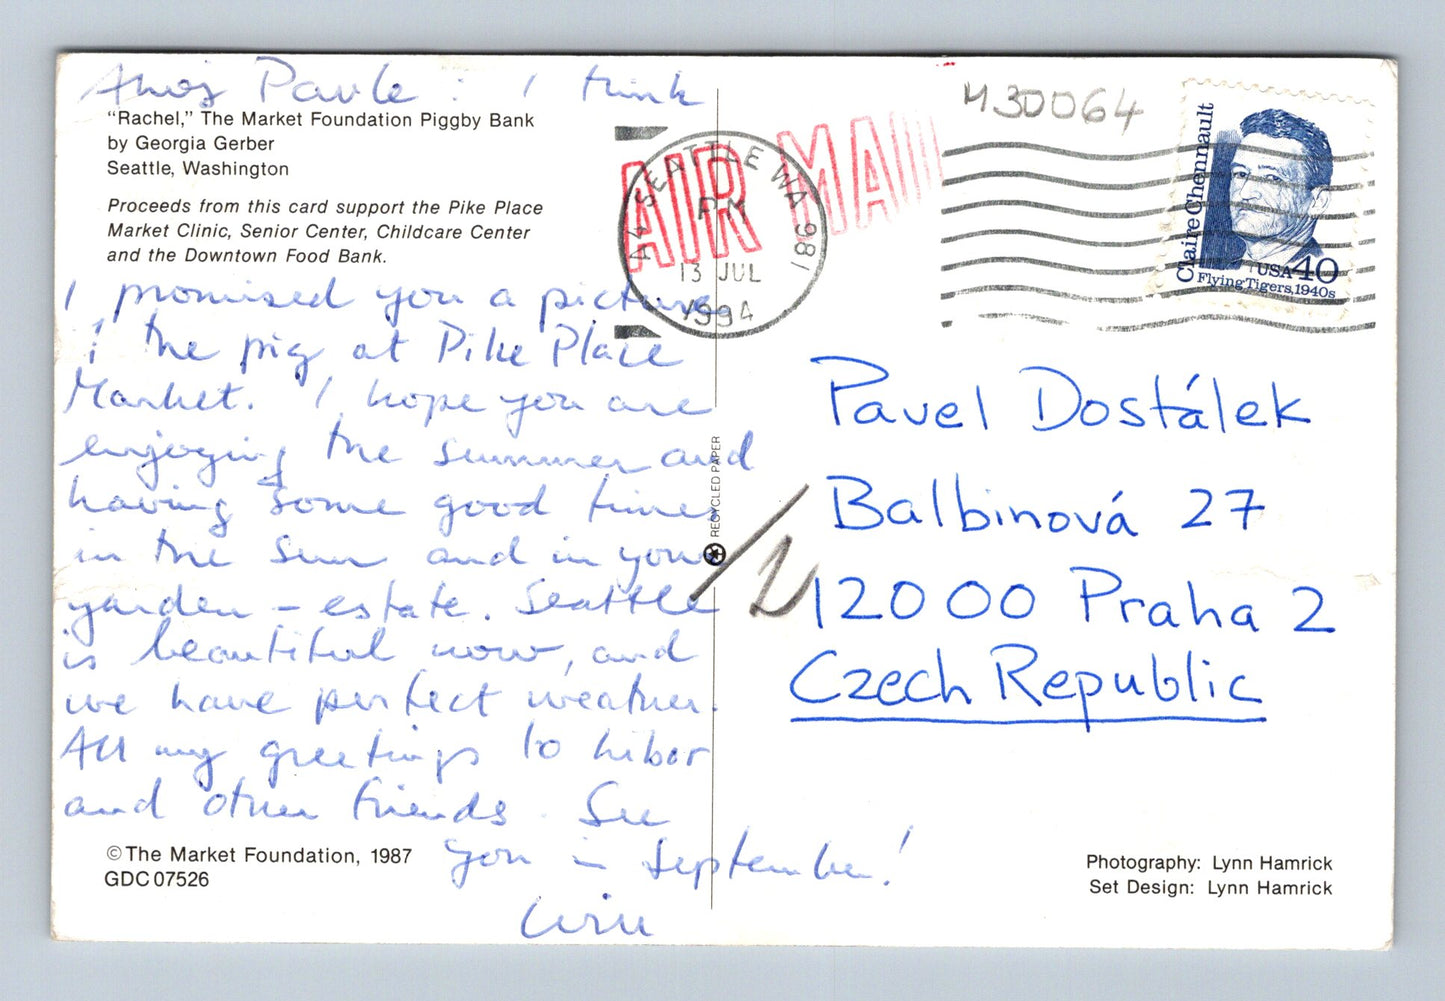 Ahoj Pavle: I think
"Rachel," The Market Foundation Piggby Bank
by Georgia Gerber
Seattle, Washington
Proceeds from this card support the Pike Place
Market Clinic, Senior Center, Childcare Center
and the Downtown Food Bank.
I promised you a picture
of the pig at Pike Place
Market. I hope you are
enjoying the summer and
having some good times
in the sun and in your
garden – estate. Seattle
is beautiful now, and
we have perfect weather.
All my greetings to Libor
and other friends. See
you in September!
Will
© The Market Foundation, 1987
GDC 07526
RECYCLED PAPER
AIR MAIL
SEATTLE WA 981
PM
13 JUL
1994
M30064
Claire Chennault
USA 40
Flying Tigers, 1940s
Pavel Dostálek
Balbinová 27
12000 Praha 2
Czech Republic
Photography: Lynn Hamrick
Set Design: Lynn Hamrick